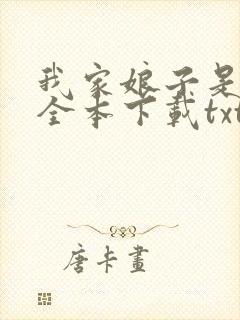 我家娘子是
全本下載txt
唐卡畫